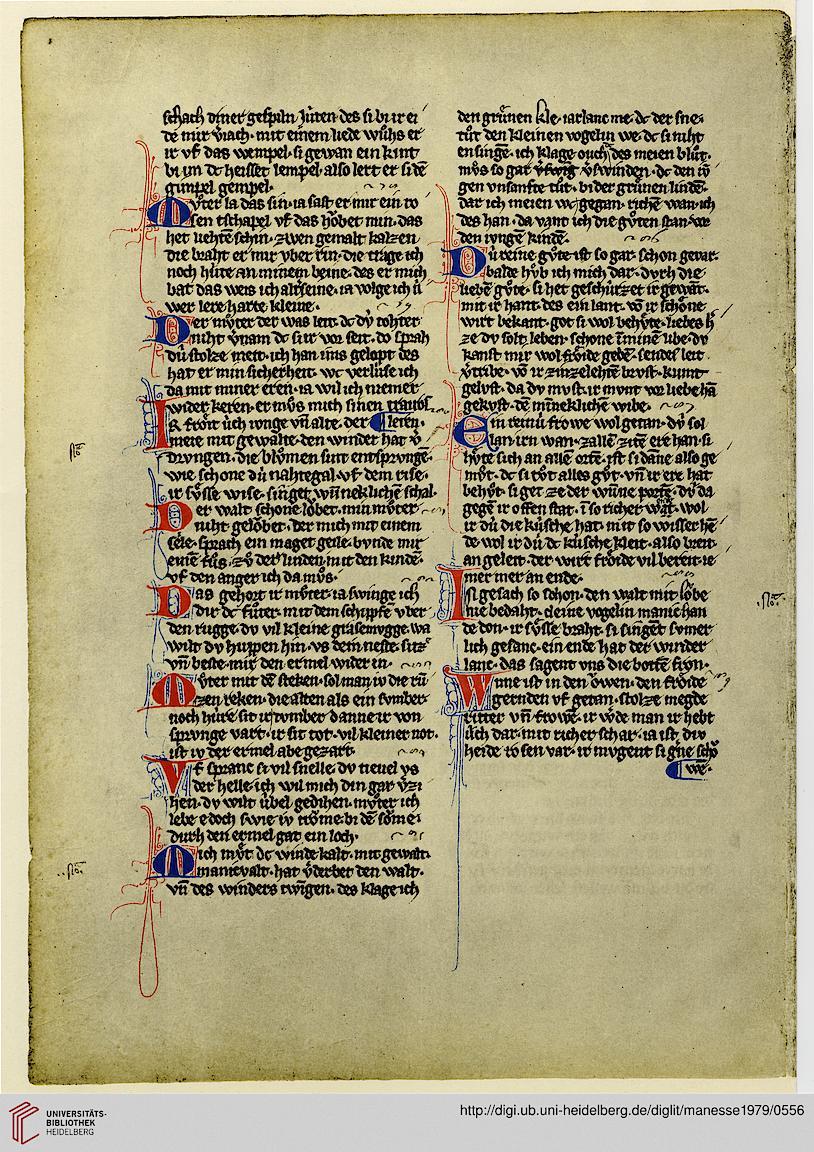 schach diner gespiln Jv̍ten des si bi ir ei
de mir v̍iach · mit einem liede wůhs er
ir vf das wempel · si gewan ein kint
bi im dc hiesset lempel · also lert er si dē
gimpel gempel ·
Mv̊ter la das sin · ia sast er mir ein ro
sen tschapel vf das hôbet min · das
het liehtē schin · zwen gemalt kalzen
die braht er mir vber rin · die trage ich
noch hv́te an minem beine · des er mich
bat das weis ich alterseine · ia volge ich v́
wer lere harte kleine ·
Der mv̊ter der was leit · dc dv́ tohter
niht v̍nam dc si ir vor seit · do sprah
dv́ stolze meit · ich han ims gelopt des
hat er min sicherheit · wc verlv́se ich
da mit miner eren · ia wil ich niemer
wider keren · er mv̊s mich sinen
Ia frôit v́ch ivnge vn̄ alte · der leren ·
meie mit gewalte · den winder hat v̍
drvngen · die blv̊men sint entsprvngē
wie schone dv́ nahtegal · vf dem rise ·
ir sv̊sse wise · singet wu̍neklichē schal ·
Der walt schone lôbet · min mv̊ter
niht gelôbet · der mich mit einem
seile · sprach ein maget geile · bvnde mir
einē fůs · zv̊ der linden mit den kindē ·
vf den anger ich da mv̊s ·
Das gehort ir mv̊ter · ia swinge ich
dir dc fv̊ter · mit dem schipfe vber
den rugge · dv vil kleine grasemvgge · wa
wilt dv huppen hin · vs dem neste · sitz
vn̄ beste · mir den ermel wider in ·
Mv̊ter mit dē steken · sol man iv die rv́
zen reken · die alten als ein svmber ·
noch hv́re sit ir tvmber danne ir von
sprvnge vart · ir sit tot · vil kleiner not ·
ist iv der ermel abe gezart ·
Vf spranc si vil snelle · dv tieuel vs
der helle · ich wil mich din gar v̍zi
hen · dv wilt v́bel gedihen · mv̊ter ich
lebe edoch swie iv trôme · bi dē sôme ·
durh den ermel gat ein loch ·
Mich mv̊t dc winde kalt · mit gewalt ·
manicvalt · hat v̍derbet den walt ·
vn̄ des winders twīgen · des klage ich
den grv̊nen kle · iarlanc me · dc der sne ·
tůt den kleinen vogelin we · dc si niht
ensingē · ich klage ouch des meien blv̊t ·
mv̊s so gar v̍swinden · dc den iv́
gen vnsanfte tůt · bi der grv̊nen lindē ·
dar ich meien we gegan · richē wan ich
des han · da vant ich die gv̊ten stan vor
den ivngē kindē ·
Dv́ reine gv̊te ist so gar schon gevar ·
balde hv̊b ich mich dar · dvrh die
liebē gv̊te · si het geschv́rzet ir gewāt ·
mit ir hant · des ein lant · vō ir schône
wirt bekant · got si wol behv̊te · liebes h̍
ze dv solt leben · schone īminē libe · dv
kanst mir wol frôide gebē · sendes leit
v̍tribe · vō ir zinzelehtē brvst · kumt
gelvst · da dv mvst · ir mvnt vor liebe hā
gekvst · dē minneklichē wibe ·
Ein reinu̍ frowe wolgetan · dv́ sol
lan irn wan · zallē zitē ere han · si
hv̊te sich an allē ortē · ist si danē also ge
mv̊t · dc si tůt alles gv̊t · vn̄ ir ere hat
behv̊t · si get ze der wūne portē · dv́ da
gegē ir offen stat · ī so richer wat · wol
ir dv́ die kv́sche hat · mit so wisser hē
de · wol ir dv́ dc kv́sche kleit · also breit ·
an geleit · der wirt frôide vil bereit · ie
mer mer an ende ·
In gesach so schon · den walt mit lôbe
nie bedaht · cleine vogelin manic han
de don · ir sv̊sse braht · si singēt svmer
lich gesanc · ein ende hat der winder
lanc · das sagent vns die bottē frôn ·
Wune ist in den ôwen · den frôide
gernden vf getan · stolze megde
ritter vn̄ frowē · ir wêde man ir hebt
v́ch dar · mit richer schar · ia ist · dv́
heide rosen var · ir mvgent si gne scho
we ·
UNIVERSITÄTS-
BIBLIOTHEK
HEIDELBERG
http://digi.ub.uni-heidelberg.de/diglit/manesse1979/0556